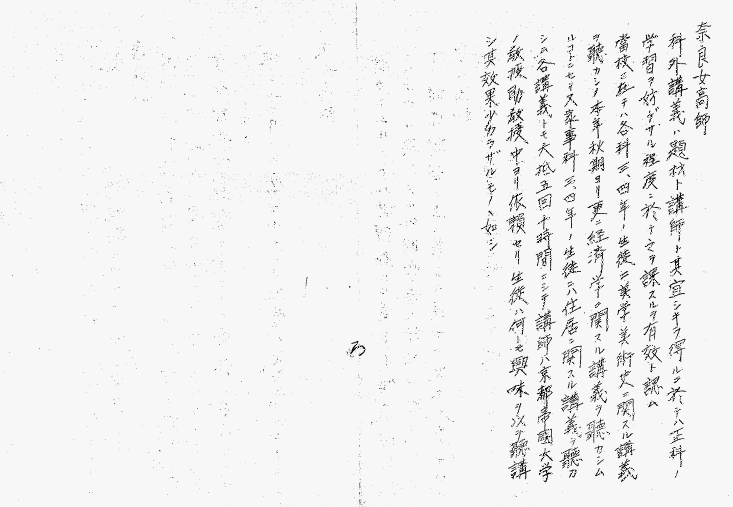 奈良女高師
科外講義ハ題材ト講師ト其宜シキヲ得ルニ於テハ正科ノ
学習ヲ妨ゲザル程度ニ於テ之ヲ課スルヲ有效ト認ム
當校ニ在テハ各科三、四年ノ生徒ニ美学美術史ニ関スル講義
ヲ聽カシメ本年秋期ヨリ更ニ経済学ニ関スル講義ヲ聽カシム
ルコトニセリ又家事科三、四年ノ生徒ニハ住居ニ関スル講義ヲ聽カ
シム各講義トモ大抵五回十時間ニシテ講師ハ京都帝國大学
ノ教授助教授中ヨリ依頼セリ生徒ハ何レモ興味ヲ以テ聽講
シ其效果少カラザルモノヽ如シ